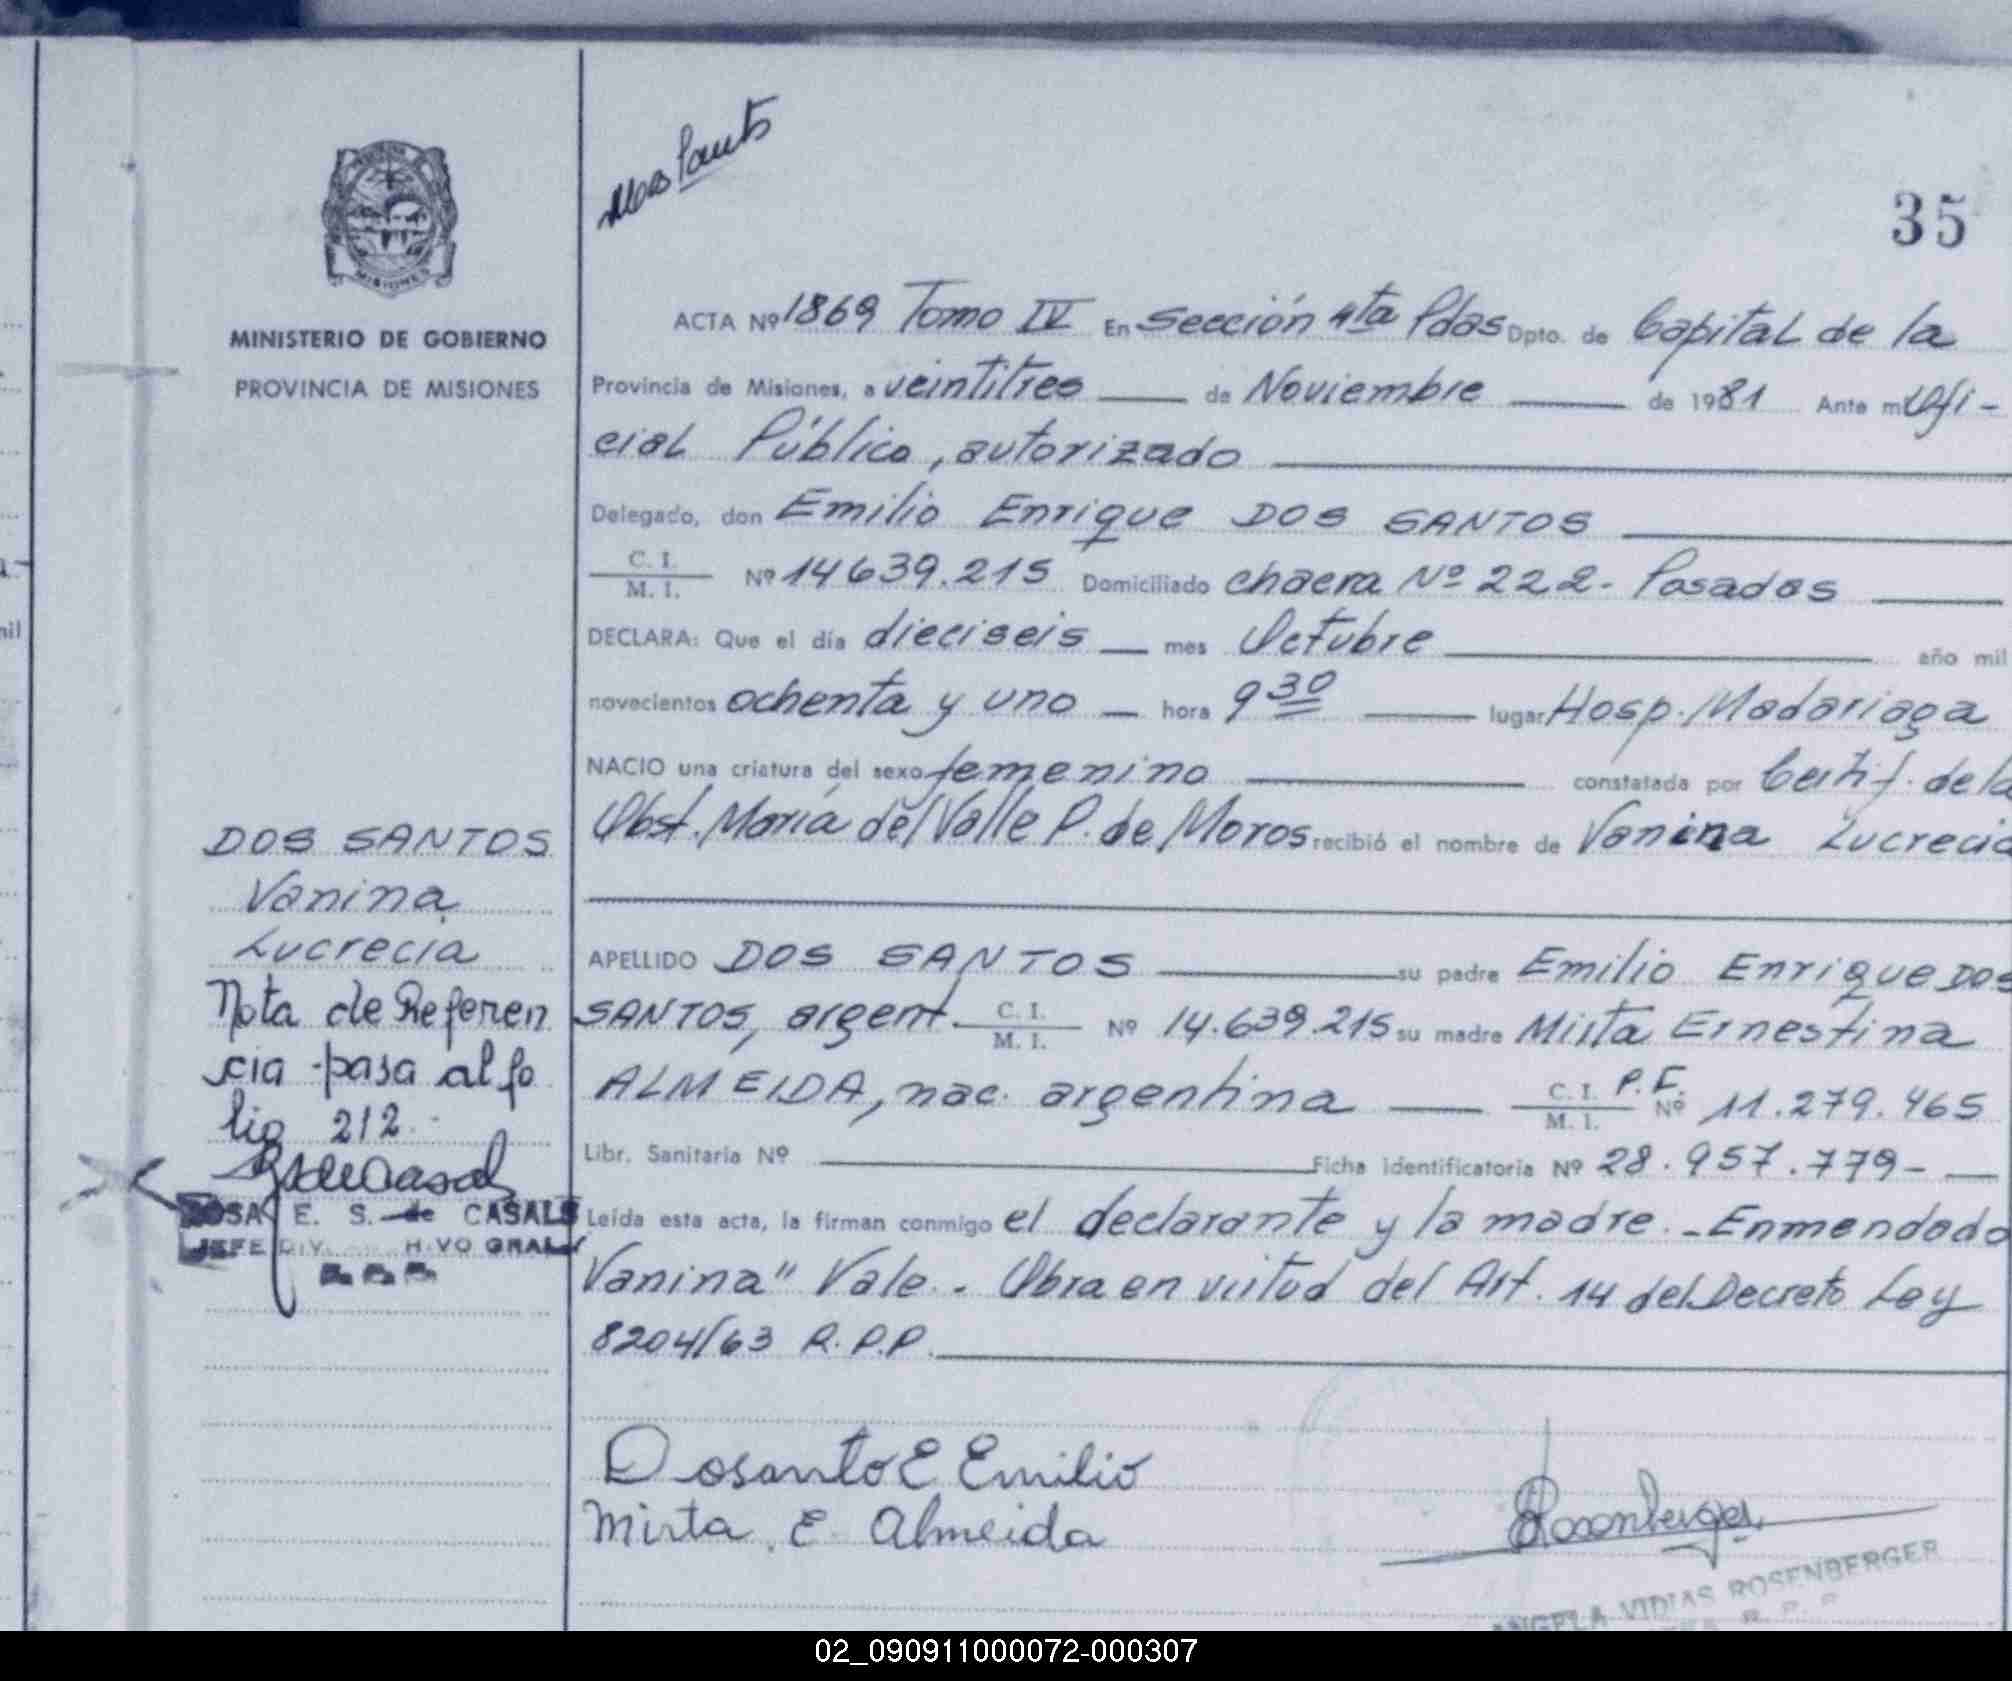 Dos Santos
35
MISIONES
MINISTERIO DE GOBIERNO
PROVINCIA DE MISIONES
DOS SANTOS
Vanina
Lucrecia
Nota de Referen
cia pasa al fo
lio 212.
ROSA E. S. de CASALS
JEFE DIV. GRAL
ACTA Nº 1869 Tomo IV En Sección 4ta Pdas Dpto. de Capital de la
Provincia de Misiones, a veintitres de Noviembre de 1981 Ante mi Ofi-
cial Público, autorizado
Delegado, don Emilio Enrique DOS SANTOS
C. I.
M. I. Nº 14639.215 Domiciliado chacra Nº 222. Posadas
DECLARA: Que el día dieciseis mes Octubre año mil
novecientos ochenta y uno hora 9 30 lugar Hosp. Madariaga
NACIO una criatura del sexo femenino constatada por Certif. de la
Obst. María del Valle P. de Moros recibió el nombre de Vanina Lucrecia
APELLIDO DOS SANTOS su padre Emilio Enrique DOS
SANTOS, argent. C. I. M. I. Nº 14.639.215 su madre Mirta Ernestina
ALMEIDA, nac. argentina C. I. M. I. P.F. Nº 11.279.465
Libr. Sanitaria Nº Ficha identificatoria Nº 28.957.779-
Leída esta acta, la firman conmigo el declarante y la madre.-Enmendado
Vanina" Vale. Obra en virtud del Art. 14 del Decreto Ley
8204/63 R.P.P.
Dosanto E Emilio
Mirta. E. Almeida
Rosenberger
ANGELA VIDIAS ROSENBERGER
R. P. P.
02_090911000072-000307